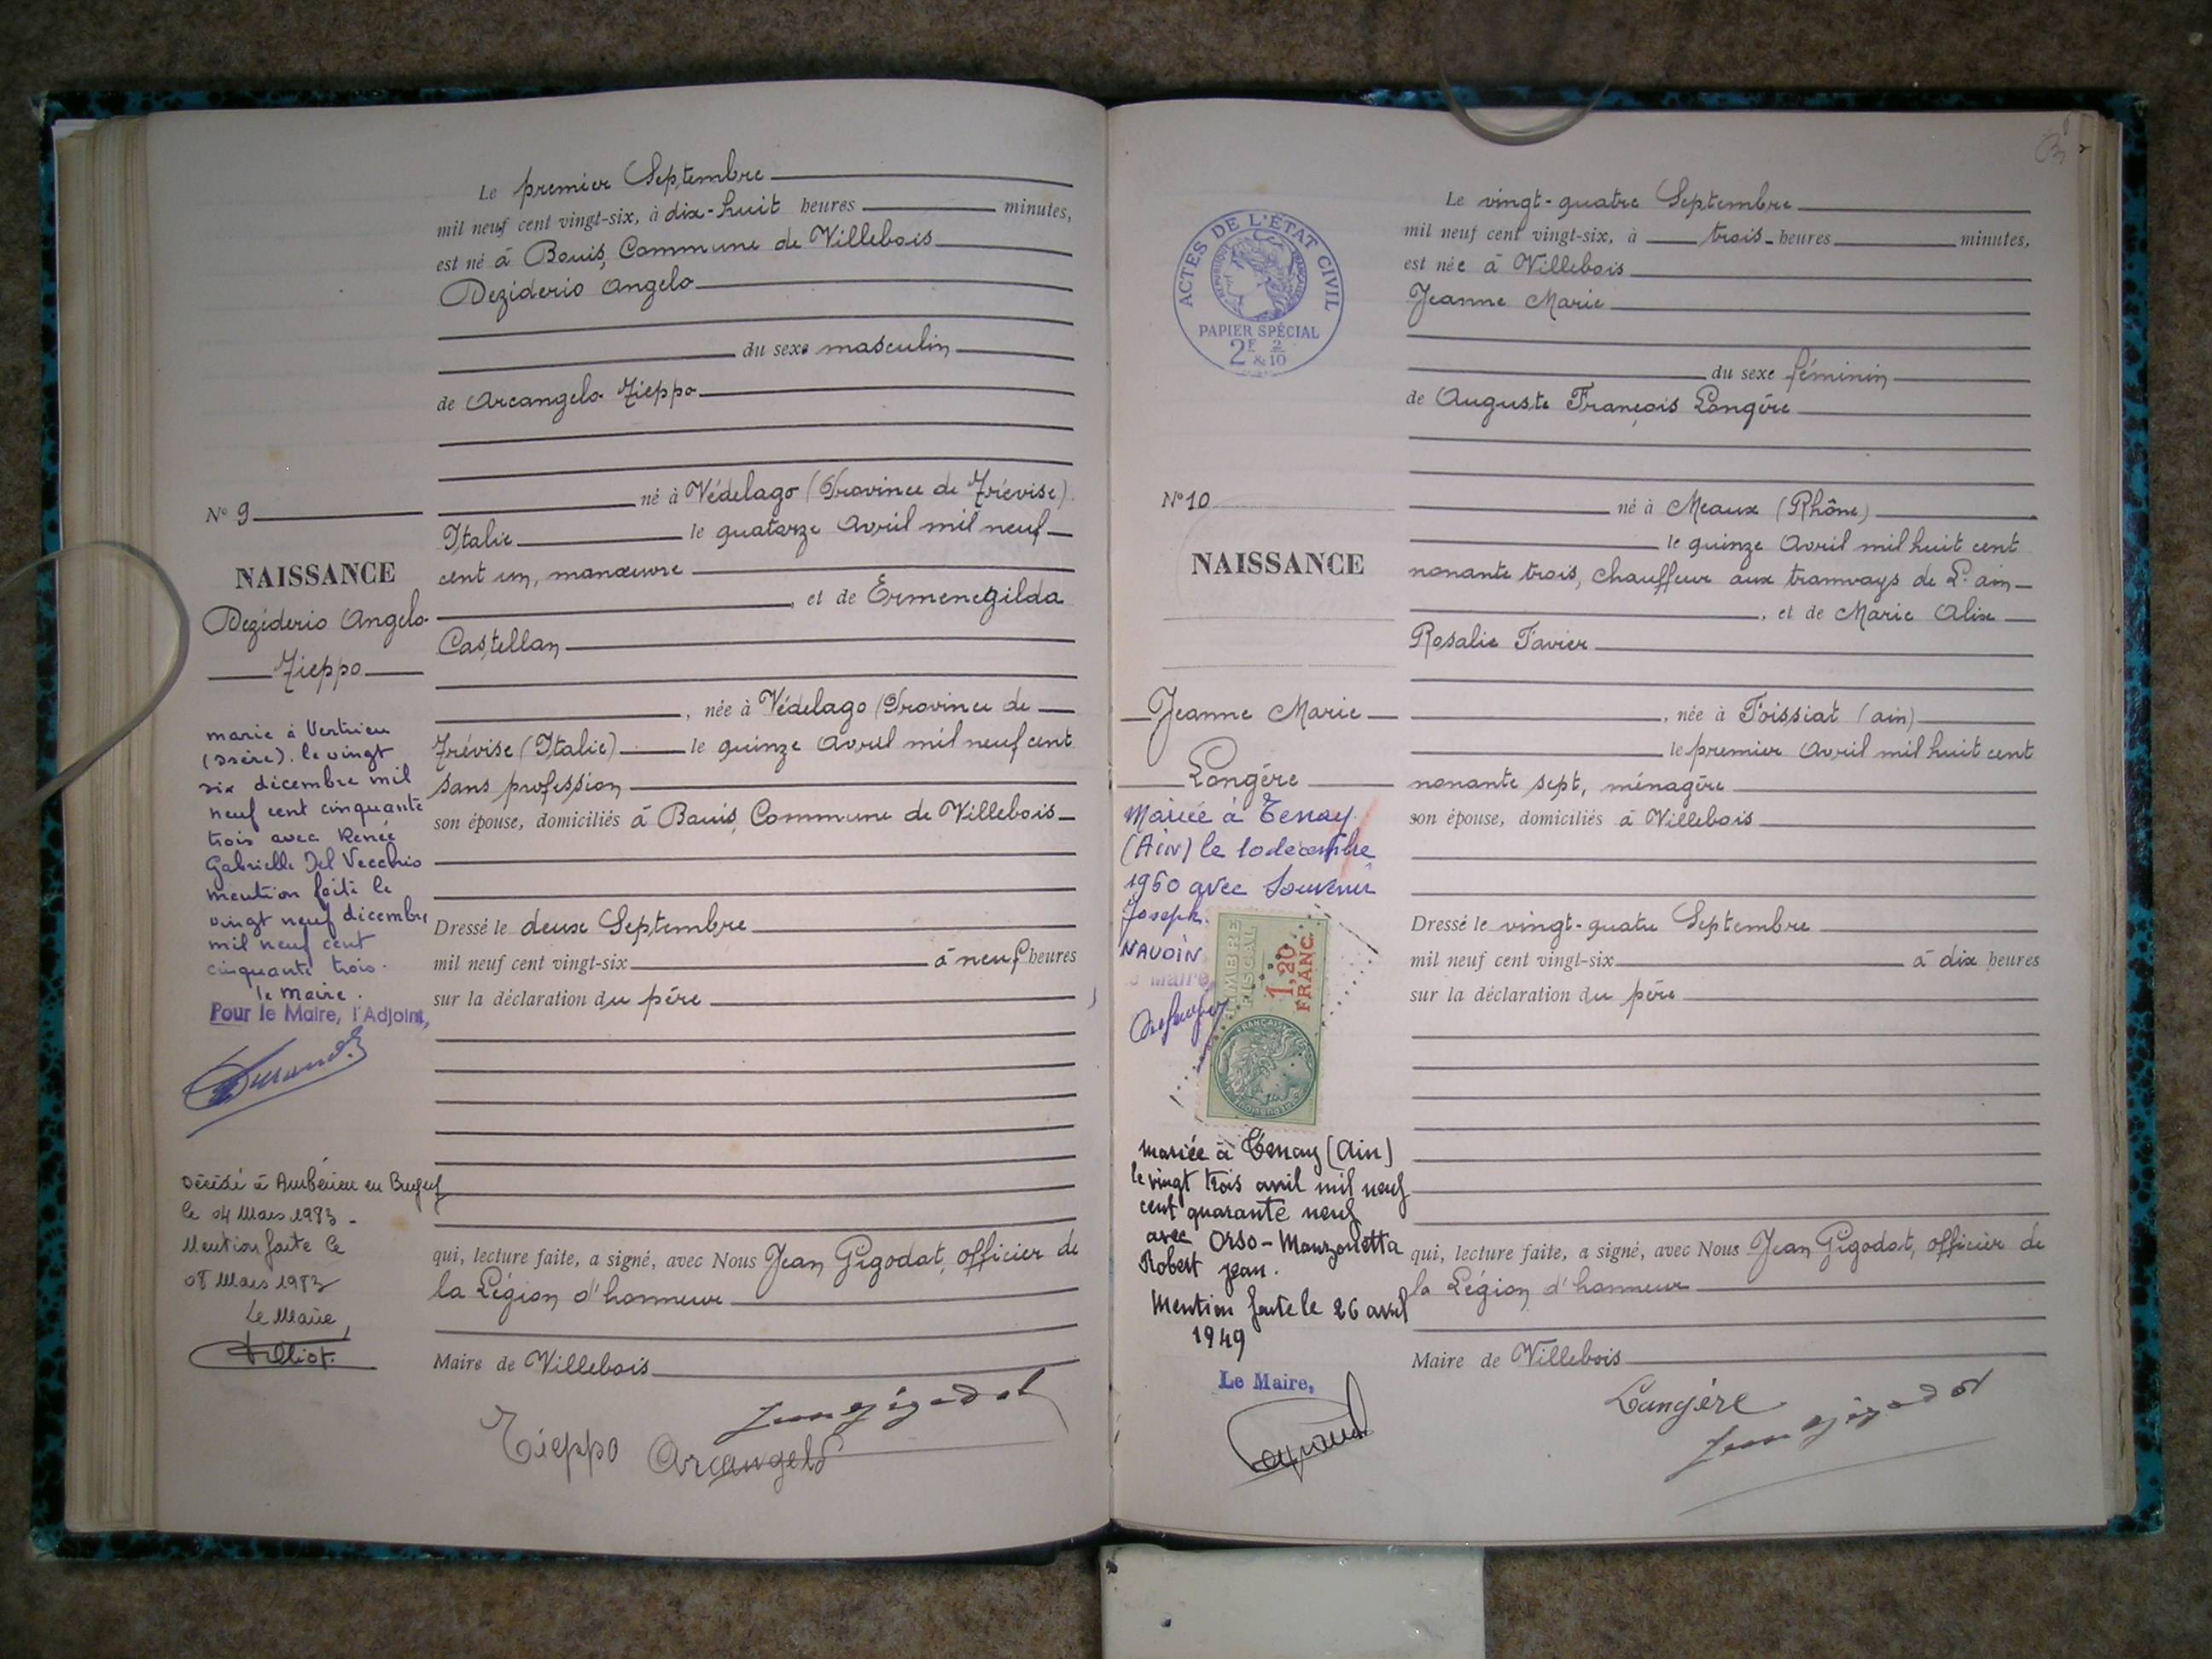 Le premier Septembre
mil neuf cent vingt-six, à dix-huit heures minutes,
est né à Bouis, Commune de Villebois
Deziderio Angelo
du sexe masculin
de Arcangelo Tieppo
né à Védelago (Province de Trévise)
Italie le quatorze Avril mil neuf
cent un, manœuvre
, et de Ermenegilda
Castellan
, née à Védelago (Province de
Trévise (Italie) le quinze Avril mil neuf cent
sans profession
son épouse, domiciliés à Bouis, Commune de Villebois
Dressé le deux Septembre
mil neuf cent vingt-six à neuf heures
sur la déclaration du père
qui, lecture faite, a signé, avec Nous Jean Gigodot, officier de
la Légion d'honneur
Maire de Villebois
Jean Gigodot
Tieppo Arcangelo
N° 9
NAISSANCE
Deziderio Angelo
Tieppo
marié à Vertrieu
(Isère). le vingt
six décembre mil
neuf cent cinquante
trois avec Renée
Gabrielle Del Vecchio
mention faite le
vingt neuf décembre
mil neuf cent
cinquante trois.
le Maire.
Pour le Maire, l'Adjoint,
Décédé à Ambérieu en Bugey
le 04 Mars 1983 -
Mention faite le
08 Mars 1983
Le Maire,
ACTES DE L'ÉTAT CIVIL
RÉPUBLIQUE FRANÇAISE
PAPIER SPÉCIAL
2F & 2/10
Le vingt-quatre Septembre
mil neuf cent vingt-six, à trois heures minutes,
est née à Villebois
Jeanne Marie
du sexe féminin
de Auguste François Longère
né à Meaux (Rhône)
le quinze Avril mil huit cent
nonante trois, chauffeur aux tramways de L'ain
, et de Marie Alix
Rosalie Favier
, née à Foissiat (ain)
le premier Avril mil huit cent
nonante sept, ménagère
son épouse, domiciliés à Villebois
Dressé le vingt-quatre Septembre
mil neuf cent vingt-six à dix heures
sur la déclaration du père
qui, lecture faite, a signé, avec Nous Jean Gigodot, officier de
la Légion d'honneur
Maire de Villebois
Longère
Jean Gigodot
N° 10
NAISSANCE
Jeanne Marie
Longère
Mariée à Tenay
(Ain) le 10 décembre
1960 avec Souvenir
Joseph
NAVOIN
Le Maire,
TIMBRE
FISCAL
1,20
FRANC
mariée à Tenay (Ain)
le vingt trois avril mil neuf
cent quarante neuf
avec Orso-Manzonetta
Robert Jean.
Mention faite le 26 avril
1949
Le Maire,